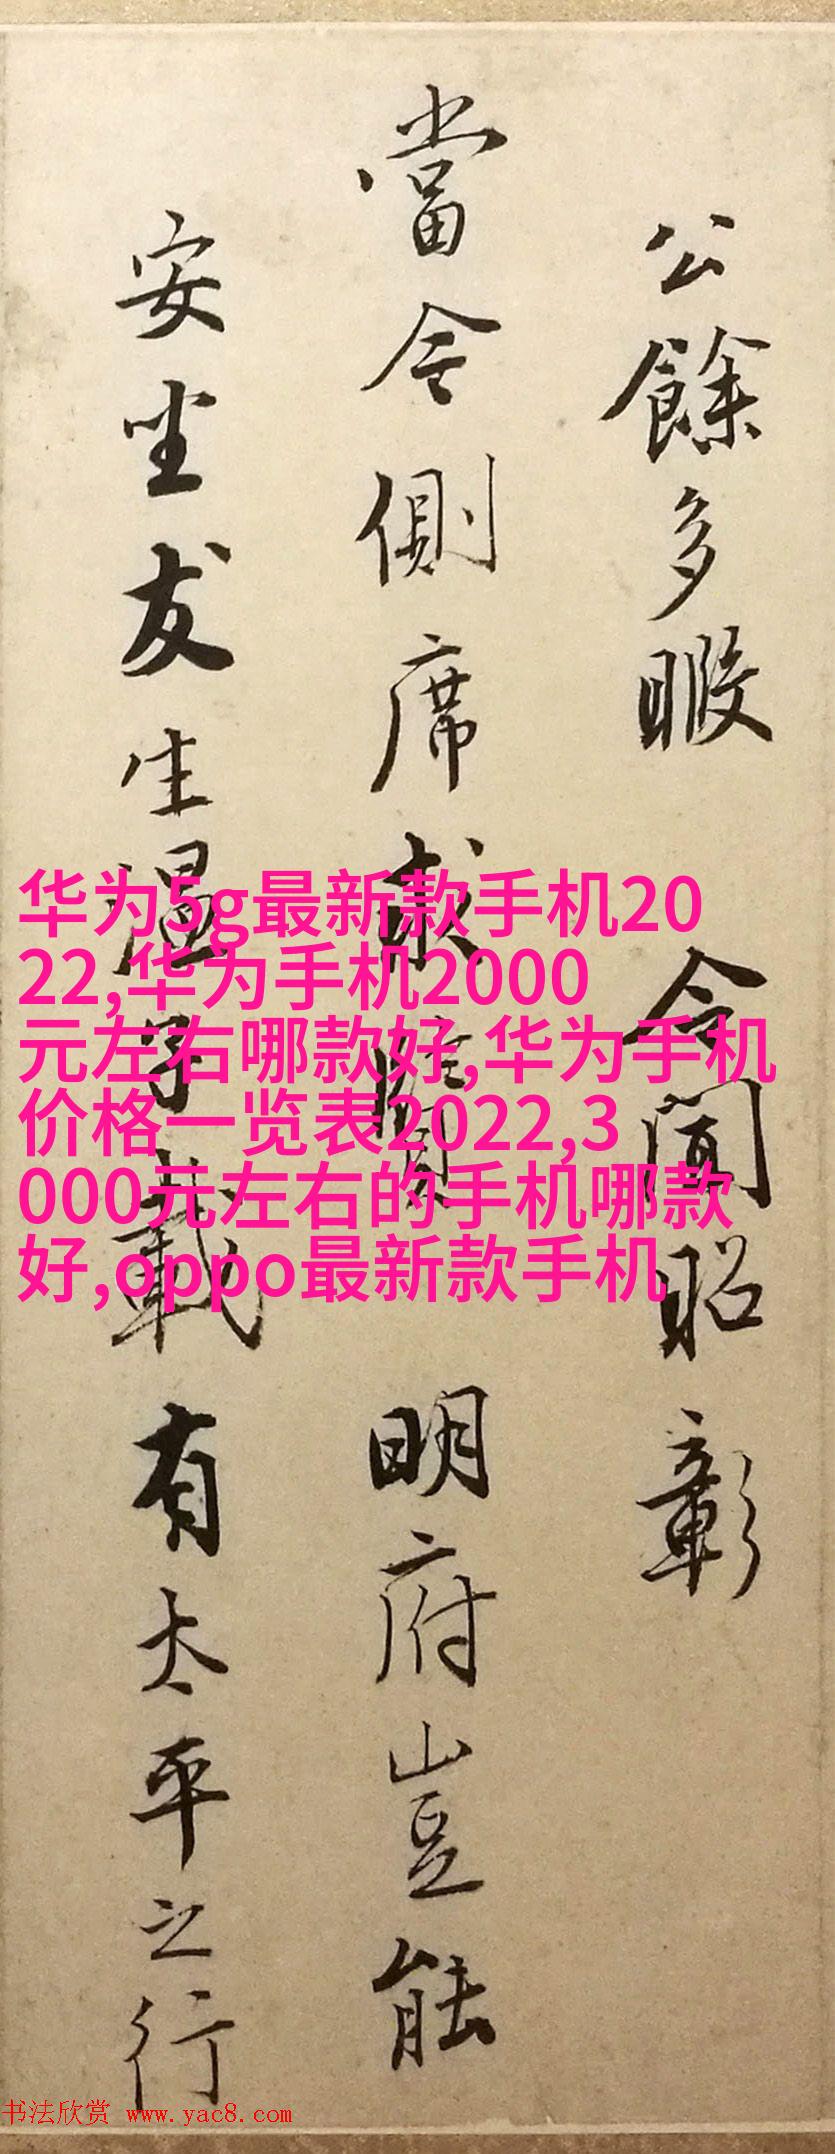 公餘多暇 令聞昭彰
當今側席求賢 明府豈能
安坐友生温子載有太平之行
华为5g最新款手机20
22,华为手机2000
元左右哪款好,华为手机
价格一览表2022,3
000元左右的手机哪款
好,oppo最新款手机
书法欣赏 www.yac8.com